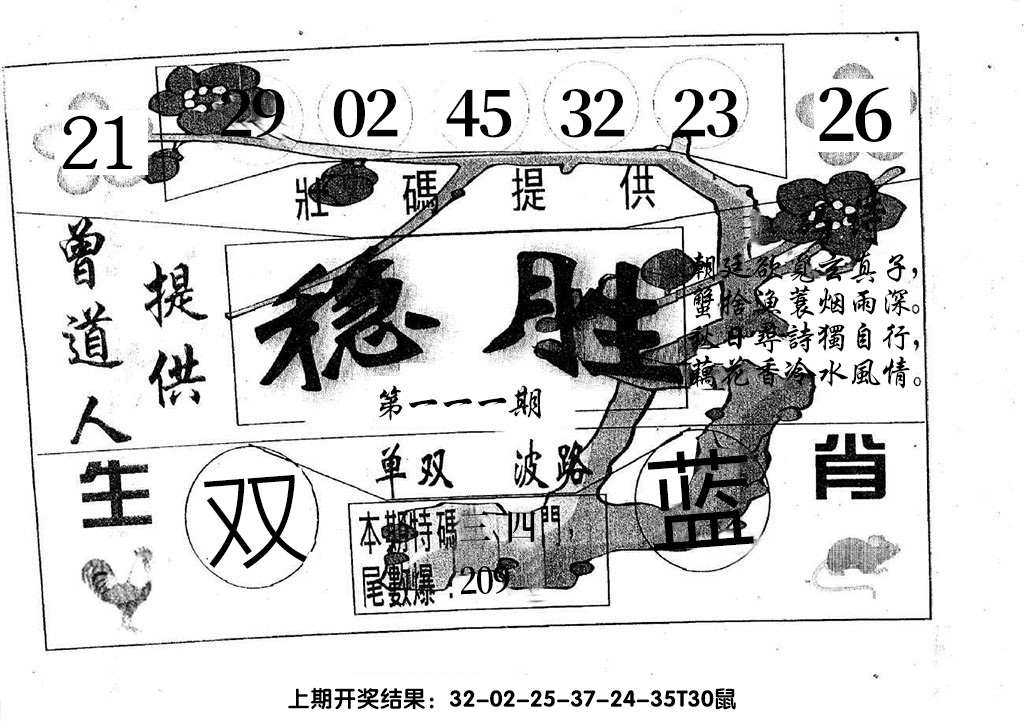 21 29 02 45 32 23 26
壯碼提供
特
曾道人
提供
稳胜
朝廷欲覓玄真子，
蟹恰漁蓑烟雨深。
秋日尋詩獨自行，
藕花香冷水風情。
第一一一期
单双 波路
生肖
双 蓝
本期特碼三、四門，
尾數爆：209
上期开奖结果：32-02-25-37-24-35T30鼠